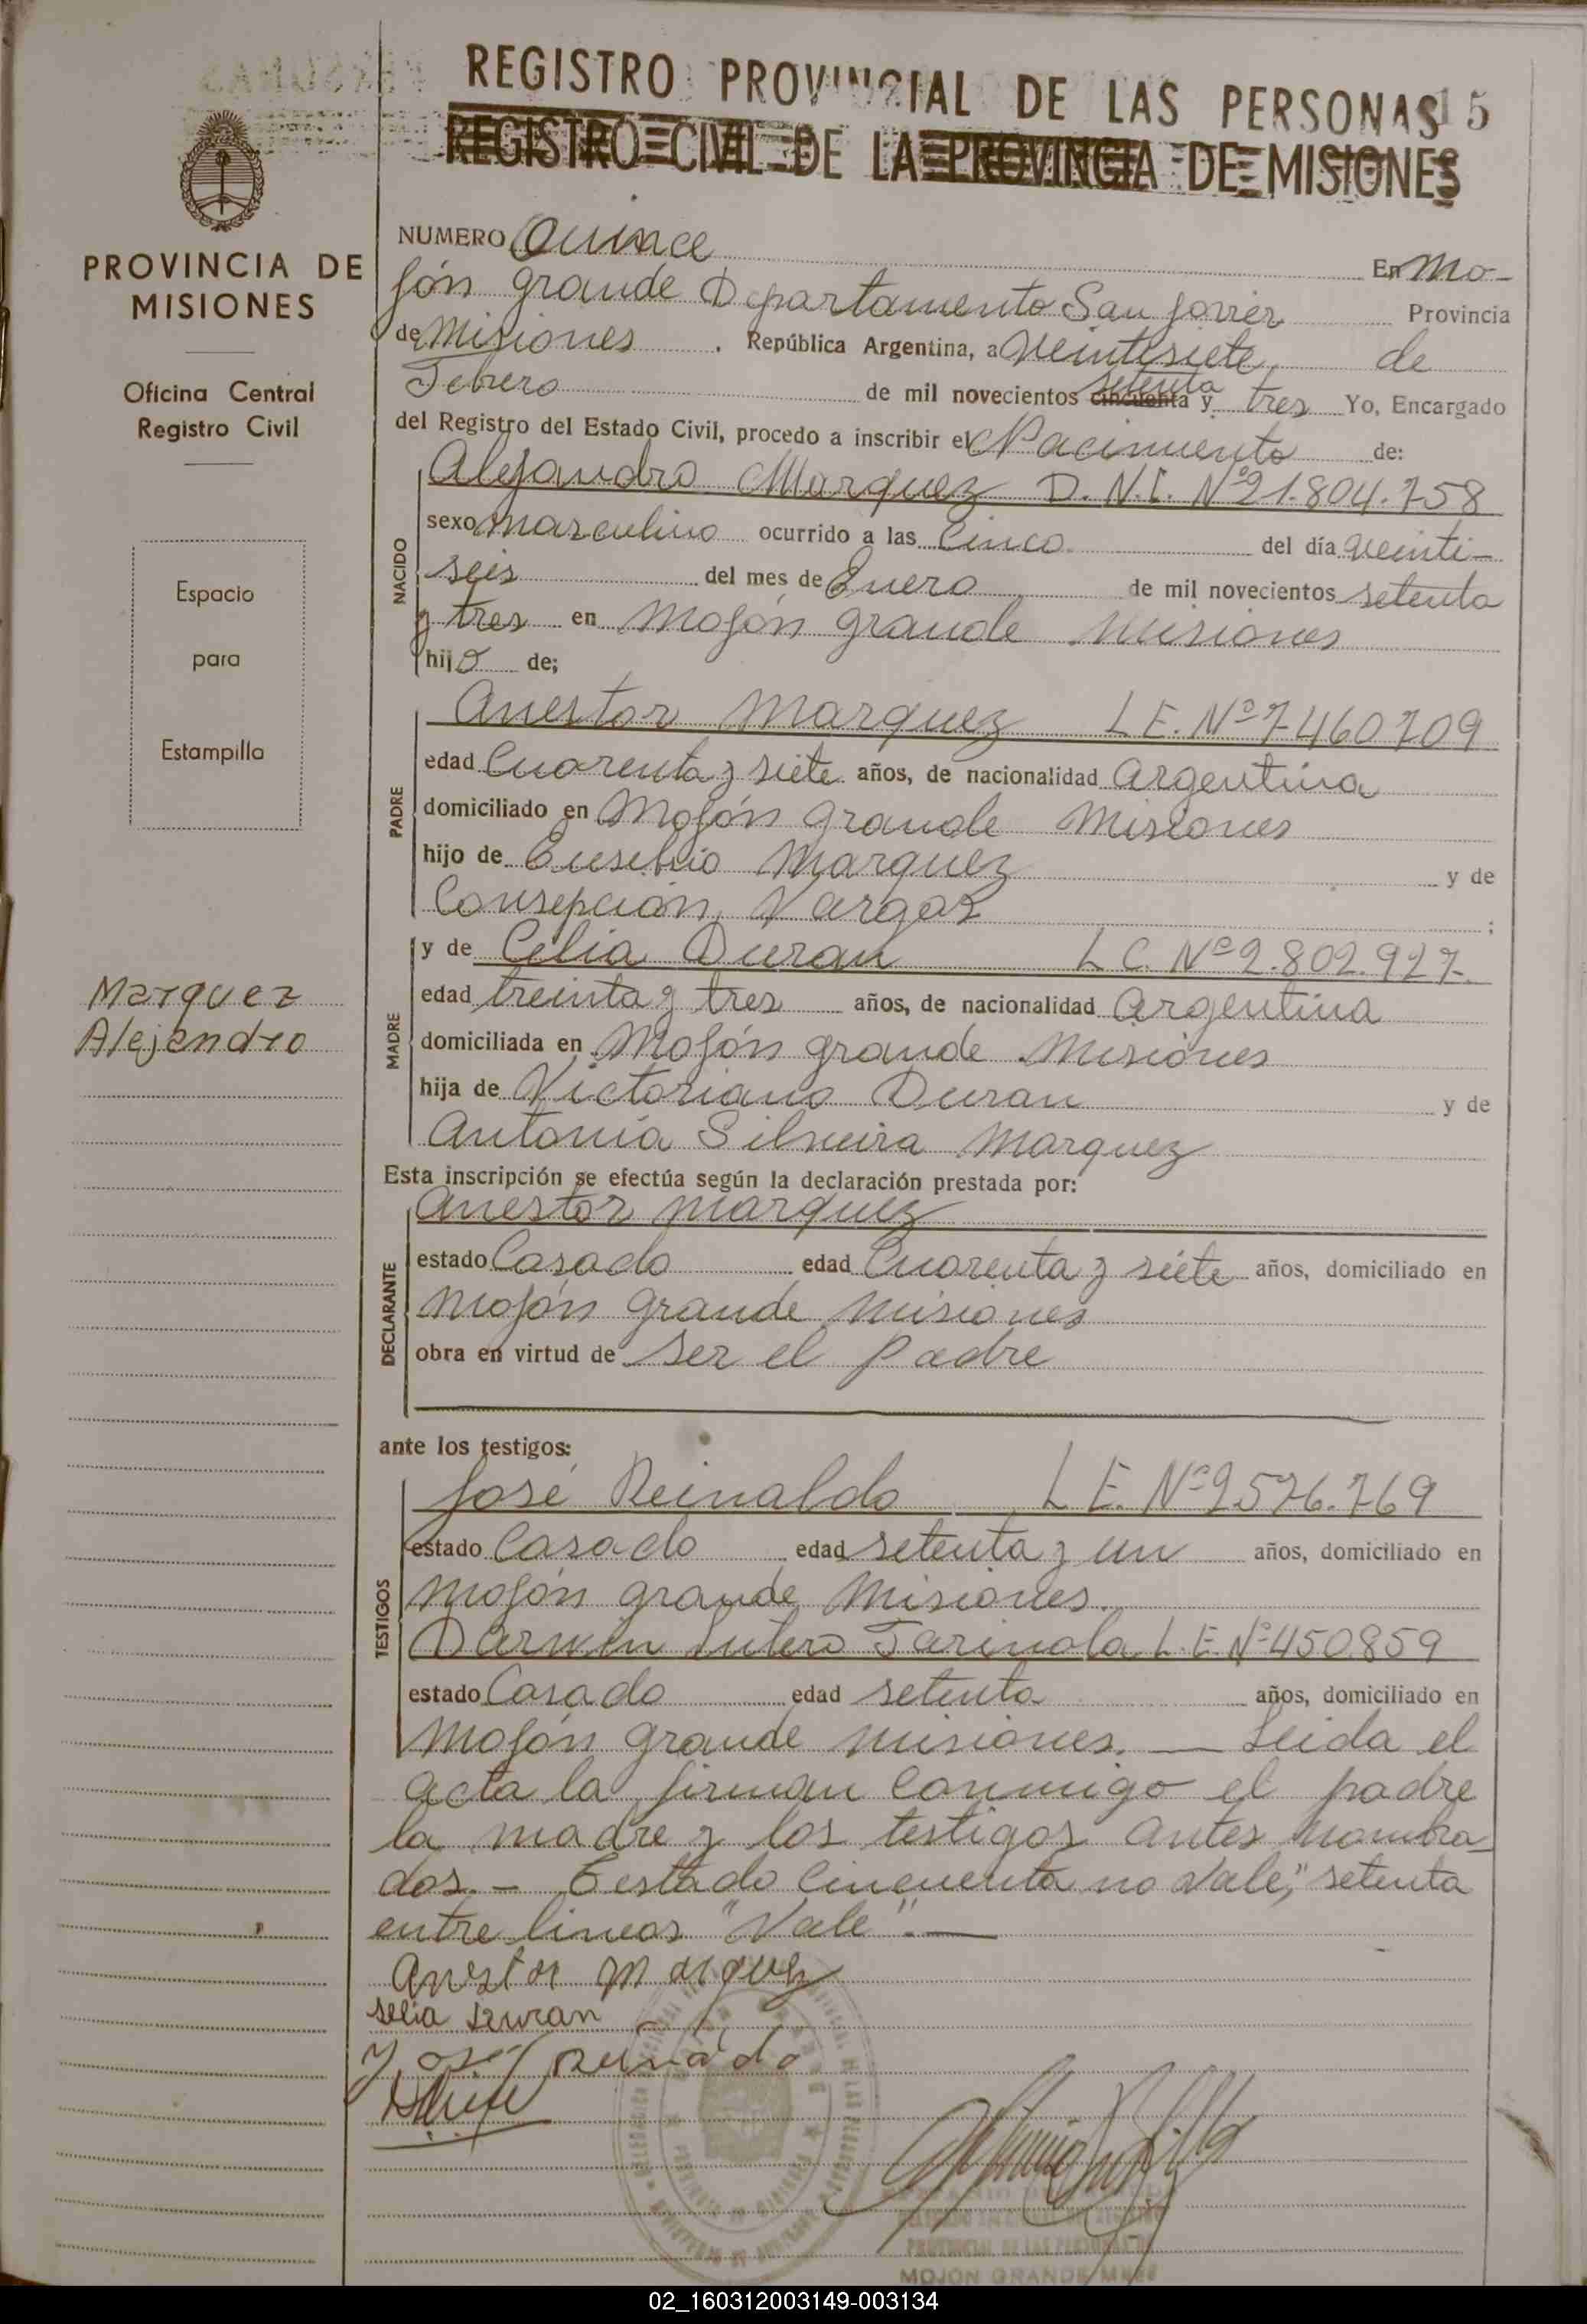 REGISTRO PROVINCIAL DE LAS PERSONAS 15
REGISTRO CIVIL DE LA PROVINCIA DE MISIONES
PROVINCIA DE
MISIONES
Oficina Central
Registro Civil
Espacio
para
Estampilla
Marquez
Alejandro
NUMERO Quince En Mo-
jón grande Departamento San Javier Provincia
de Misiones . República Argentina, a Veintisiete de
Febrero de mil novecientos cincuenta setenta y tres Yo, Encargado
del Registro del Estado Civil, procedo a inscribir el Nacimiento de:
NACIDO
Alejandro Marquez D.N.I. Nº 21.804.758
sexo masculino ocurrido a las Cinco del día veinti-
seis del mes de Enero de mil novecientos setenta
y tres en Mojón grande Misiones
hijo de;
PADRE
Anestor Marquez L E. Nº 7460709
edad Cuarenta y siete años, de nacionalidad Argentina
domiciliado en Mojón grande Misiones
hijo de Eusebio Marquez y de
Consepción Vargas ;
MADRE
y de Célia Duran L C. Nº 2.802.927.
edad treinta y tres años, de nacionalidad Argentina
domiciliada en Mojón grande Misiones
hija de Victoriano Duran y de
Antonia Silveira Marquez
Esta inscripción se efectúa según la declaración prestada por:
DECLARANTE
Anestor Marquez
estado Casado edad Cuarenta y siete años, domiciliado en
Mojón grande Misiones
obra en virtud de ser el padre
ante los testigos:
TESTIGOS
José Reinaldo L E. Nº 2576.769
estado Casado edad setenta y un años, domiciliado en
Mojón grande Misiones.
Darwin Lutero Tarinola L. E. Nº 450.859
estado Casado edad setenta años, domiciliado en
Mojón grande Misiones. — Leida el
acta la firman Conmigo el padre
la madre y los testigos antes nombra-
dos. — Testado Cincuenta no vale," setenta
entre lineas "Vale". —
Anestor Marquez
selia Duran
José Reinaldo
MOJON GRANDE
02_160312003149-003134